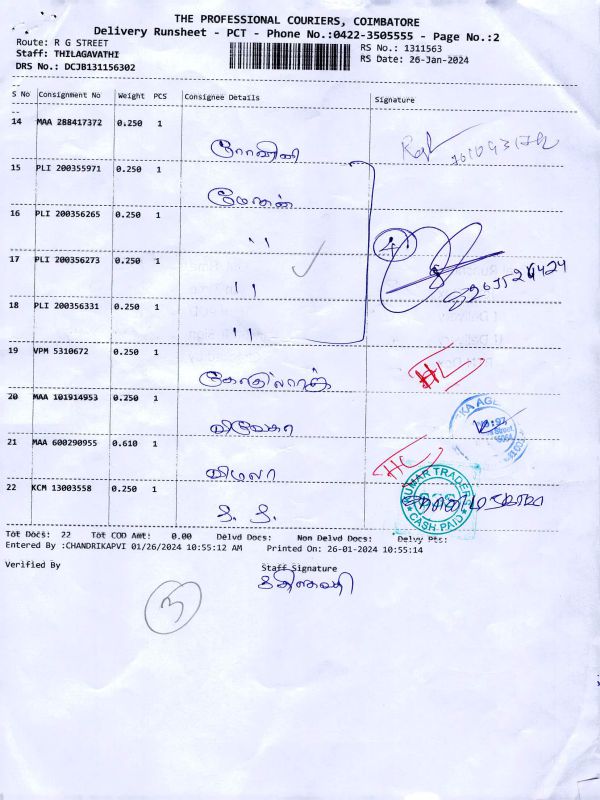 THE PROFESSIONAL COURIERS, COIMBATORE
Delivery Runsheet - PCT - Phone No.:0422-3505555 - Page No.:2
Route: R G STREET RS No.: 1311563
Staff: THILAGAVATHI RS Date: 26-Jan-2024
DRS No.: DCJB131156302
S No Consignment No Weight PCS Consignee Details Signature
14 MAA 288417372 0.250 1
15 PLI 200355971 0.250 1
மோகன்
16 PLI 200356265 0.250 1
"
17 PLI 200356273 0.250 1
"
18 PLI 200356331 0.250 1
"
19 VPM 5310672 0.250 1
HL
20 MAA 101914953 0.250 1
21 MAA 600290955 0.610 1
விமலா
22 KCM 13003558 0.250 1
KUMAR TRADERS
CASH PAID
Tot Docs: 22 Tot COD Amt: 0.00 Delvd Docs: Non Delvd Docs: Delvy Pts:
Entered By :CHANDRIKAPVI 01/26/2024 10:55:12 AM Printed On: 26-01-2024 10:55:14
Verified By Staff Signature
3